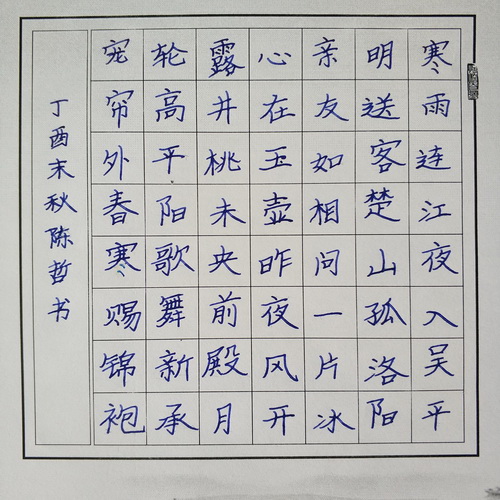 寒雨连江夜入吴平
明送客楚山孤洛阳
亲友如相问一片冰
心在玉壶昨夜风开
露井桃未央前殿月
轮高平阳歌舞新承
宠帘外春寒赐锦袍
丁酉末秋陈哲书